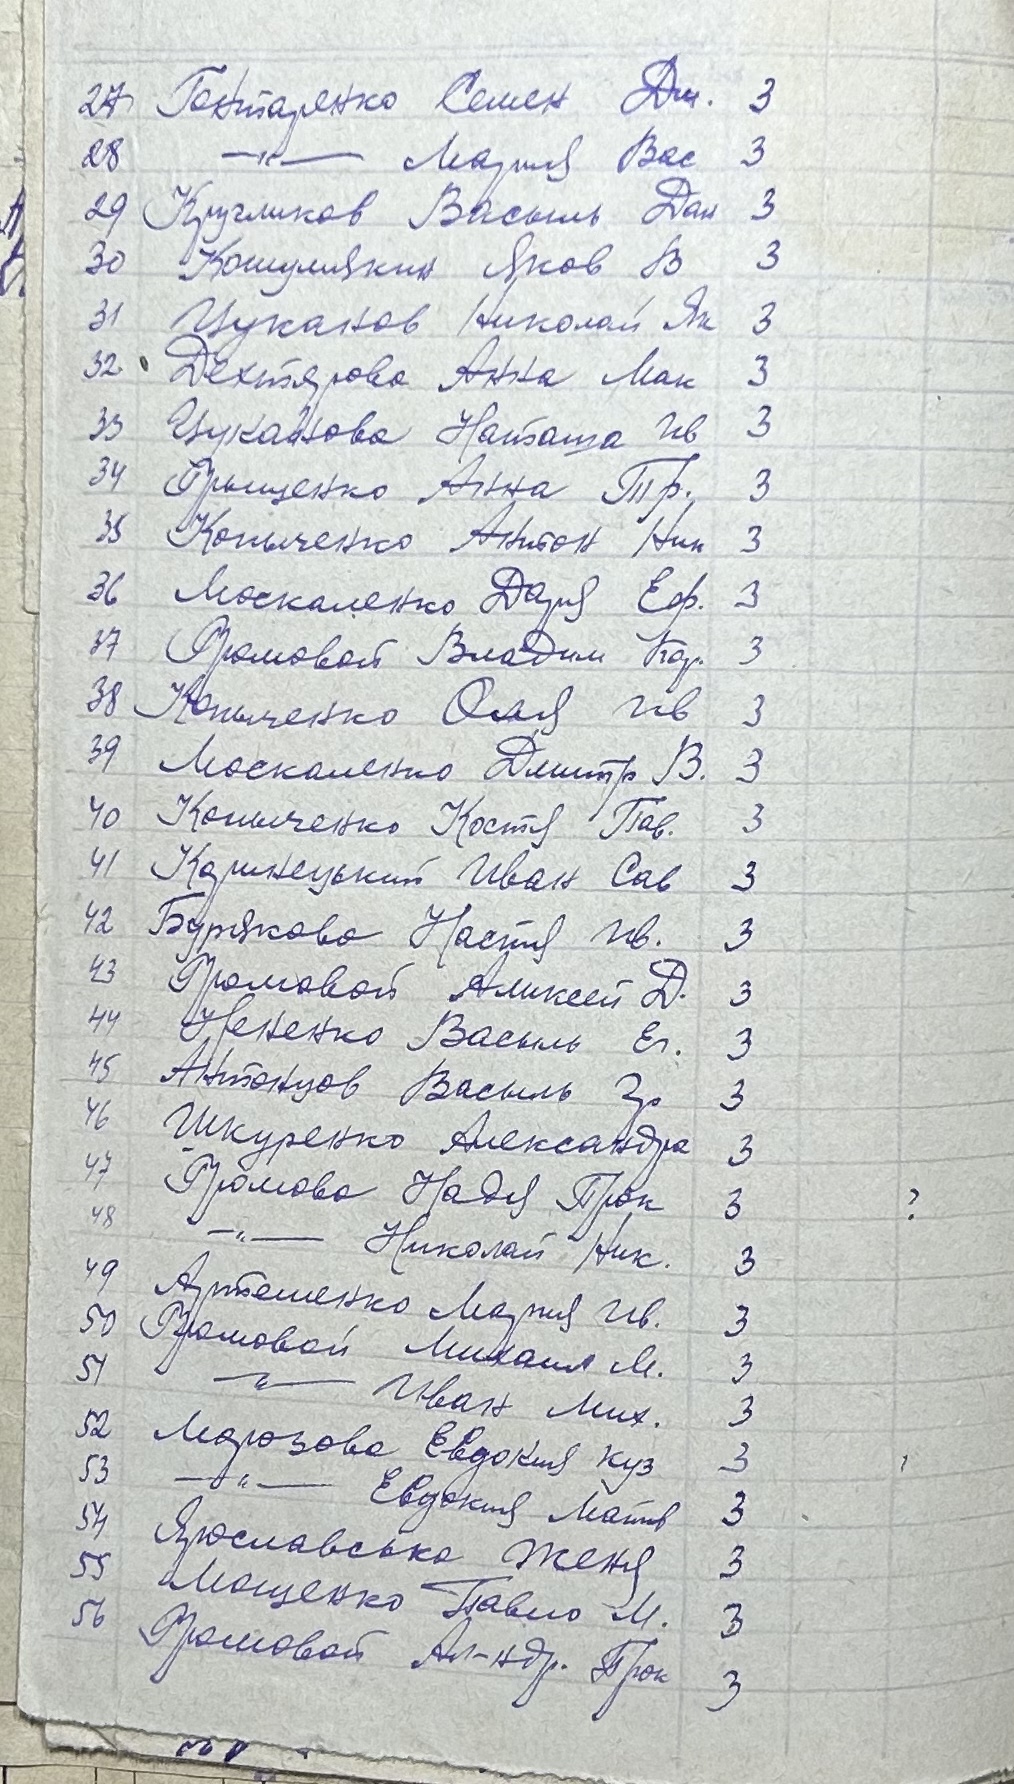 27 Гонтаренко Семен Дм. 3
28 —"— Мария Вас 3
29 Кругликов Василь Дан 3
30 Кошулякин Яков В 3
31 Цуканов Николай Як 3
32 Дехтярова Анна Мак 3
33 Цуканова Наташа Ив 3
34 Грыценко Анна Гр. 3
35 Копыченко Антон Ник 3
36 Москаленко Даря Еф. 3
37 Громовой Владим Кар. 3
38 Копыченко Оля Ив 3
39 Москаленко Дмитр В. 3
40 Копыченко Костя Пав. 3
41 Каринецький Иван Сав 3
42 Бурякова Настя Ив. 3
43 Громовой Аликсей Д. 3
44 Василь Ег. 3
45 Антонцов Василь Гр 3
46 Шкуренко Александра 3
47 Громова Надя Прок 3 ?
48 —"— Николай Ник. 3
49 Артеменко Мария Ив. 3
50 Громовой Михаил М. 3
51 —"— Иван Мих. 3
52 Марозова Евдокия Куз 3
53 —"— Евдокия Матв 3
54 Ярославська Женя 3
55 Мощенко Павло М. 3
56 Громовой Ал-ндр. Прок 3